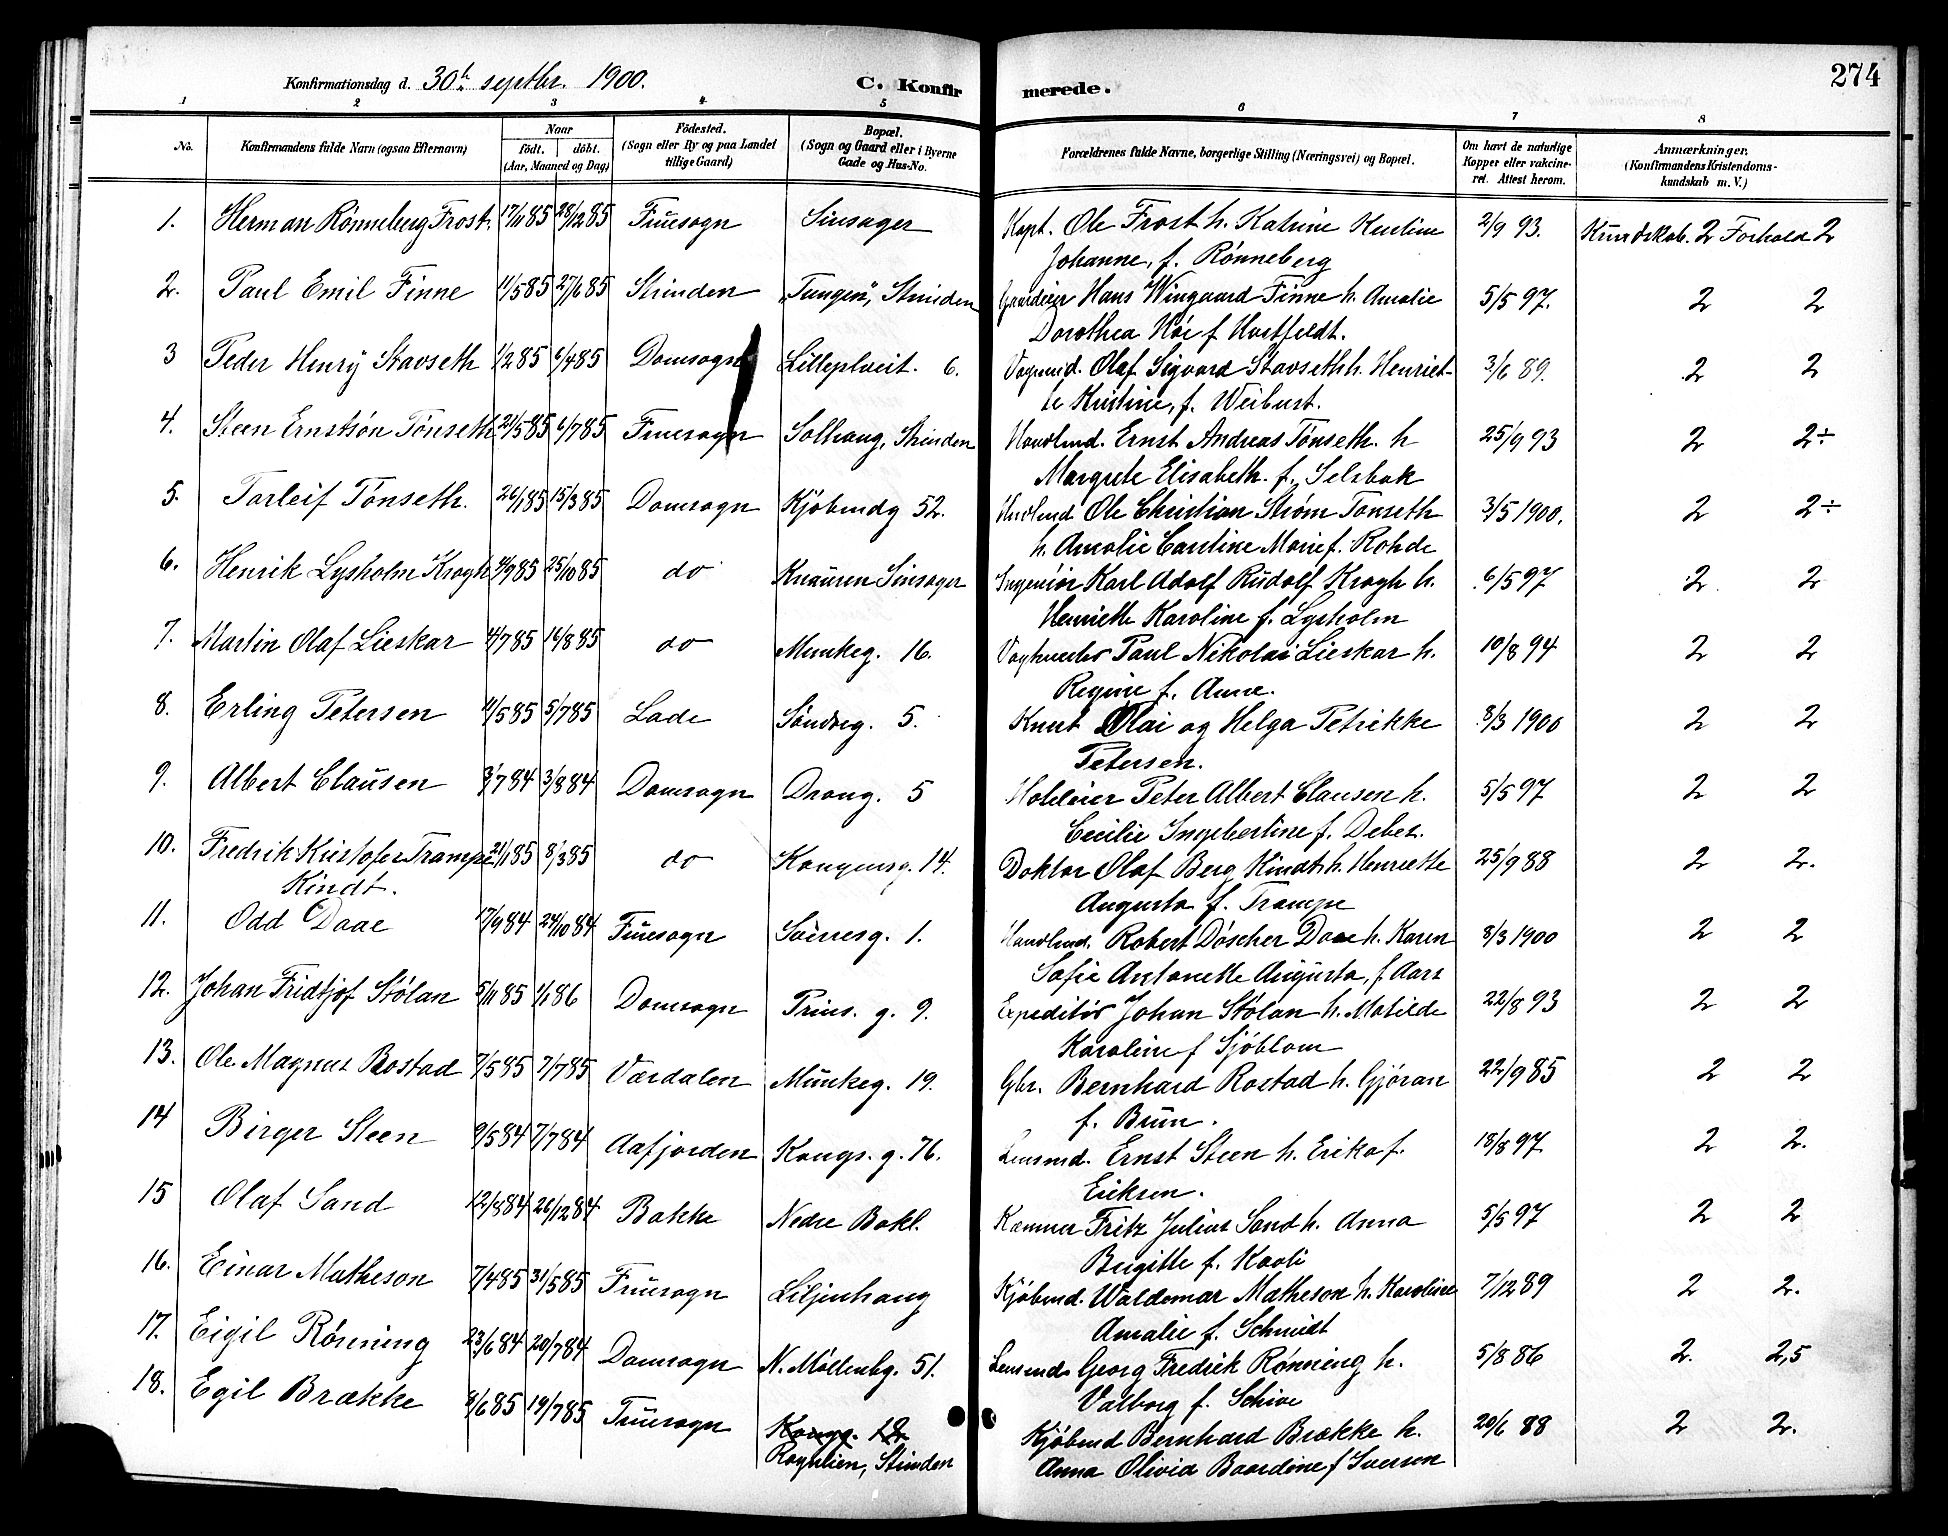 Konfirmationsdag d. 30h septbr. 1900. C. Konfirmerede. 274
1 2 3 4 5 6 7 8
No. Konfirmandens fulde Navn (ogsaa Efternavn) Naar födt. döbt. (Aar, Maaned og Dag) Födested. (Sogn eller By og paa Landet tillige Gaard) Bopæl. (Sogn og Gaard eller i Byerne Gade og Hus-No. Forældrenes fulde Navne, borgerlige Stilling (Næringsvei) og Bopæl. Om havt de naturlige Kopper eller vakcineret. Attest herom. Anmærkninger. (Konfirmandens Kristendomskundskab m. V.)
1. Herman Rønneberg Frost. 17/11 85 28/12 85 Fruesogn Sinsager Kapt. Ole Frost h. Katrine Johanne, f. Rønneberg 2/9 93. Kundskab. 2 Forhold 2
2. Paul Emil Finne 11/5 85 27/6 85 Strinden "Tungen", Strinden Gaardeier Hans Wingaard Finne h. Amalie Dorothea f 5/5 97. 2 2
3 Peder Henry Stavseth 1/2 85 6/4 85 Domsogn Lilleplveit. 6. Vognmd. Olaf Sigvard Stavseth h. Henriette Kristine, f. Weibust. 3/6 89. 2 2
4. Steen Ernstsøn Tønseth 21/5 85 6/7 85 Fruesogn Solhaug, Strinden Handlmd. Ernst Andreas Tønseth. h Margrete Elisabeth. f. Selsbak 25/9 93 2 2÷
5. Torleif Tønseth. 26/1 85 15/3 85 Domsogn Kjøbmdg 52. Handlmd. Ole Christian Strøm Tønseth h. Amalie Caroline Marie f. Rohde 3/5 1900. 2 2÷
6. Henrik Lysholm Krogh 4/9 85 25/10 85 do Knausen Sinsager Ingeniør Karl Adolf Rudolf Krogh h. Henriette Karoline f. Lysholm 6/5 97 2 2
7. Martin Olaf Lieskar 4/7 85 16/8 85 do Munkeg. 16. Paul Nikolai Lieskar h. Regine f. Aune. 10/8 94 2 2
8. Erling Petersen 11/5 85 5/7 85 Lade Søndreg. 5. Knut Olai og Helga Petrikke Petersen. 8/3 1900 2 2
9. Albert Clausen 3/7 84 3/8 84 Domsogn Drong. 5 Hoteleier Peter Albert Clausen h. Cecilie Ingebertine f. Debes. 5/5 97 2 2
10. Fredrik Kristofer Trampe Kindt. 21/1 85 8/3 85 do Kongensg. 14. Doktor Olaf Berg Kindt h. Henriette Augusta f. Trampe 25/9 88 2 2.
11. Odd Daae 17/9 84 24/10 84 Fruesogn Snorresg. 1. Handlmd. Robert Døscher Daae h. Karen Sofie Antonette Augusta, f Aars 8/3 1900 2 2
12. Johan Fridtjof Stølan 5/11 85 1/1 86 Domsogn Prins. g. 9. Expeditør Johan Stølan h. Matilde Karoline f Sjøblom 22/8 93 2 2
13. Ole Magnus Rostad 7/5 85 7/7 85 Værdalen Munkeg. 19. Gbr. Bernhard Rostad h. Gjøran f. Brun. 22/9 85 2 2
14 Birger Steen 9/5 84 7/7 84 Aafjorden Kongs. g. 76. Lensmd. Ernst Steen h. Erika f. Eriksen. 18/8 97 2 2.
15 Olaf Sand 12/8 84 26/12 84 Bakke Nedre Bakl. Kæmner Fritz Julius Sand h. Anna Brigitte f. Kaoli 5/5 97 2 2
16. Einar Matheson 7/4 85 31/5 85 Fruesogn Liljenhaug Kjøbmd. Waldemar Matheson h. Karoline Amalie f. Schmidt 7/12 89 2 2.
17. Eigil Rønning 23/6 84 20/7 84 Domsogn N. Møllenbg. 51. Lensmd Georg Fredrik Rønning h. Valborg f. Schive 5/8 86 2. 2,5
18. Egil Brække 8/6 85 19/7 85 Fruesogn Kongg. 12 Rognlien, Strinden Kjøbmd Bernhard Brække h. Anna Olivia Baardine f Iversen 20/6 88 2 2.